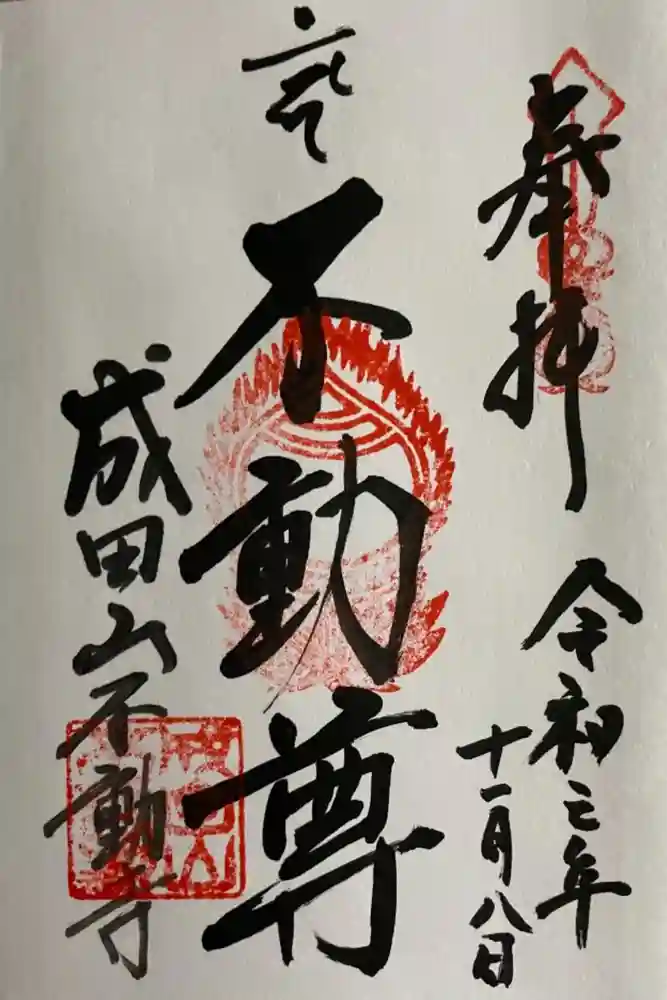 奉拝
令和元年
十一月八日
不動尊
成田山不動寺